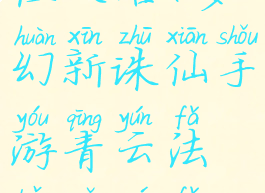 huàn xīn zhū xiān shǒu
幻新诛仙手
yóu qīng yún fǎ
游青云法